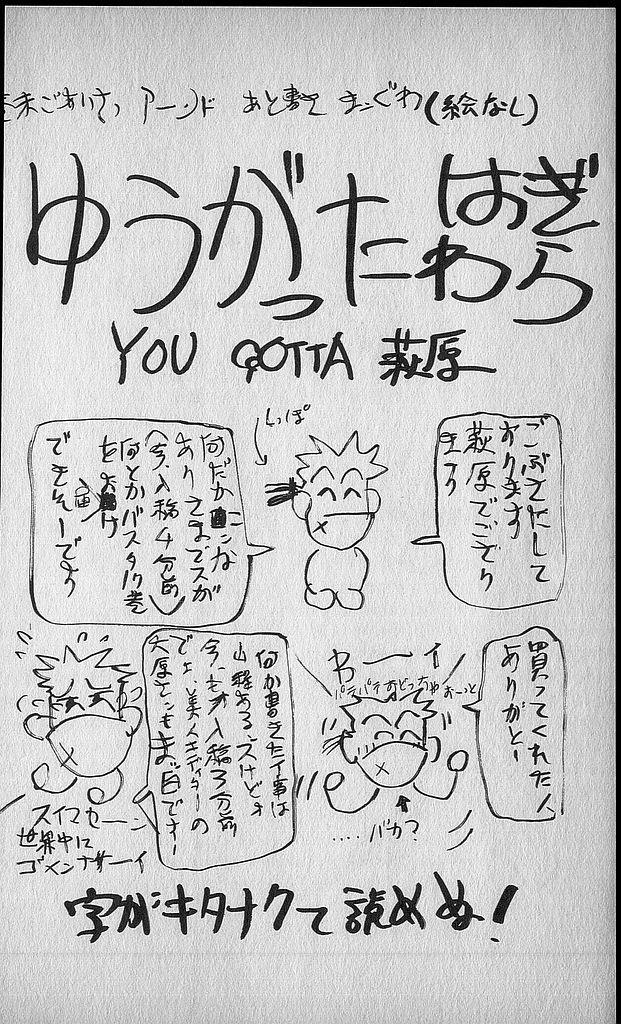 巻末ごあいさつ アーンド あと書き まんぐわ(絵なし)
ゆうがったはぎわら
YOU GOTTA 萩原
ごぶさたして
おります
萩原でござり
ます
しっぽ
何だかこんな
ありさまでスが
(今、入稿4分前)
何とかバスタ17巻
をお届け
できそーです
買ってくれた人
ありがとー
わーーイ
パチパチ
....バカ?
何か書きたイ事は
山程あるンスけどォ
今、もォ入稿3分前
でェ、美人エディターの
大厚さんもまっ白ですー
スイマセーン
世界中に
ゴメンナサーイ
字がキタナクて読めぬ!